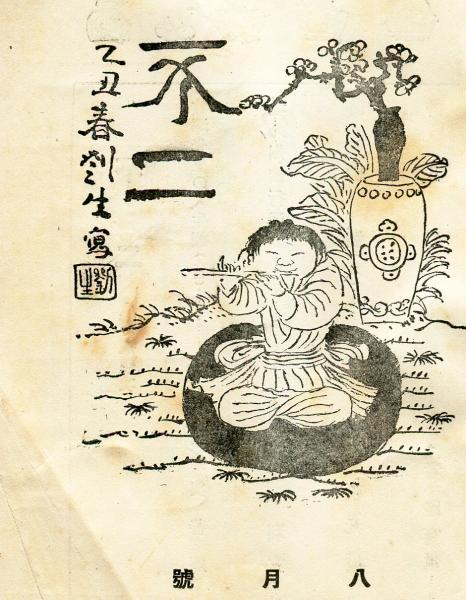 不二
乙丑春劉生寫
劉生
八月號